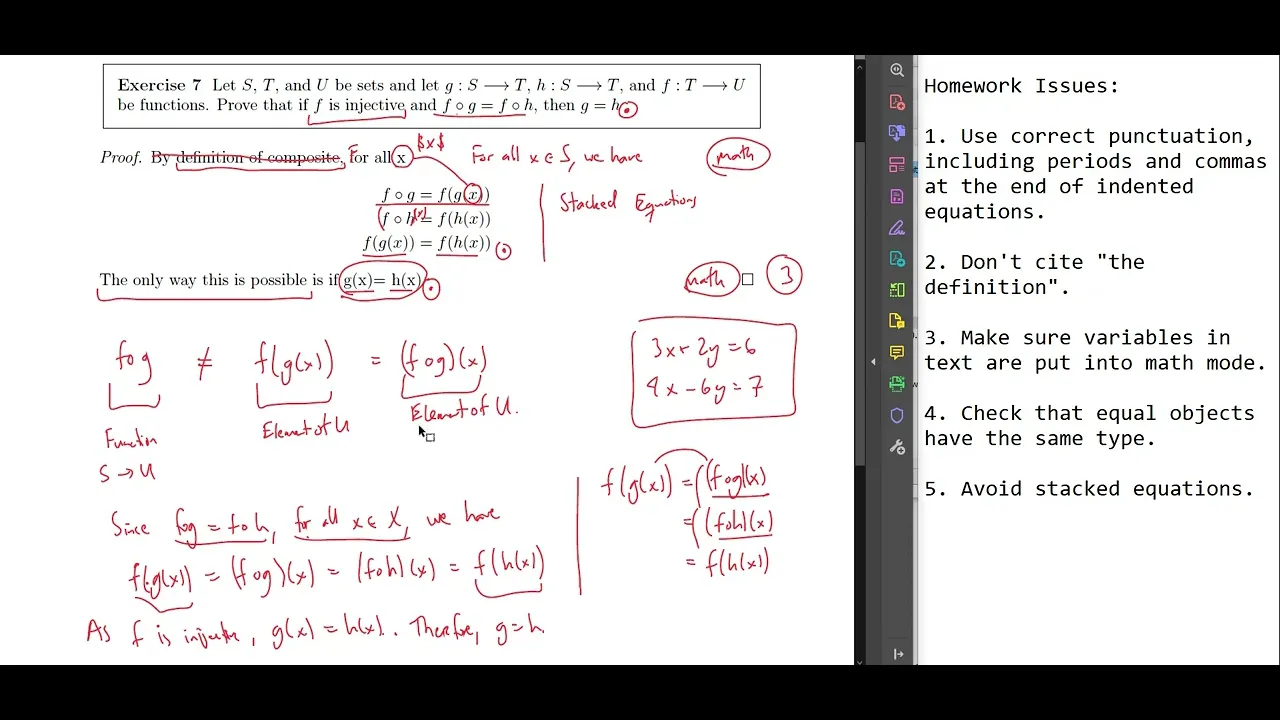 Exercise 7 Let S, T, and U be sets and let g : S ⟶ T, h : S ⟶ T, and f : T ⟶ U
be functions. Prove that if f is injective and f ∘ g = f ∘ h, then g = h.
$x$
Proof. By definition of composite, For all x
For all x ∈ S, we have
math
f ∘ g = f(g(x))
(f ∘ h)(x) = f(h(x))
f(g(x)) = f(h(x)).
Stacked Equations
The only way this is possible is if g(x)= h(x).
math □ 3
f∘g ≠ f(g(x)) = (f∘g)(x)
Function
S → U
Element of U
Element of U.
3x + 2y = 6
4x - 6y = 7
Since f∘g = f∘h, for all x ∈ X, we have
f(g(x)) = (f∘g)(x) = (f∘h)(x) = f(h(x))
As f is injective, g(x) = h(x). Therefore, g = h.
f(g(x)) = (f∘g)(x)
= (f∘h)(x)
= f(h(x))
Homework Issues:
1. Use correct punctuation,
including periods and commas
at the end of indented
equations.
2. Don't cite "the
definition".
3. Make sure variables in
text are put into math mode.
4. Check that equal objects
have the same type.
5. Avoid stacked equations.